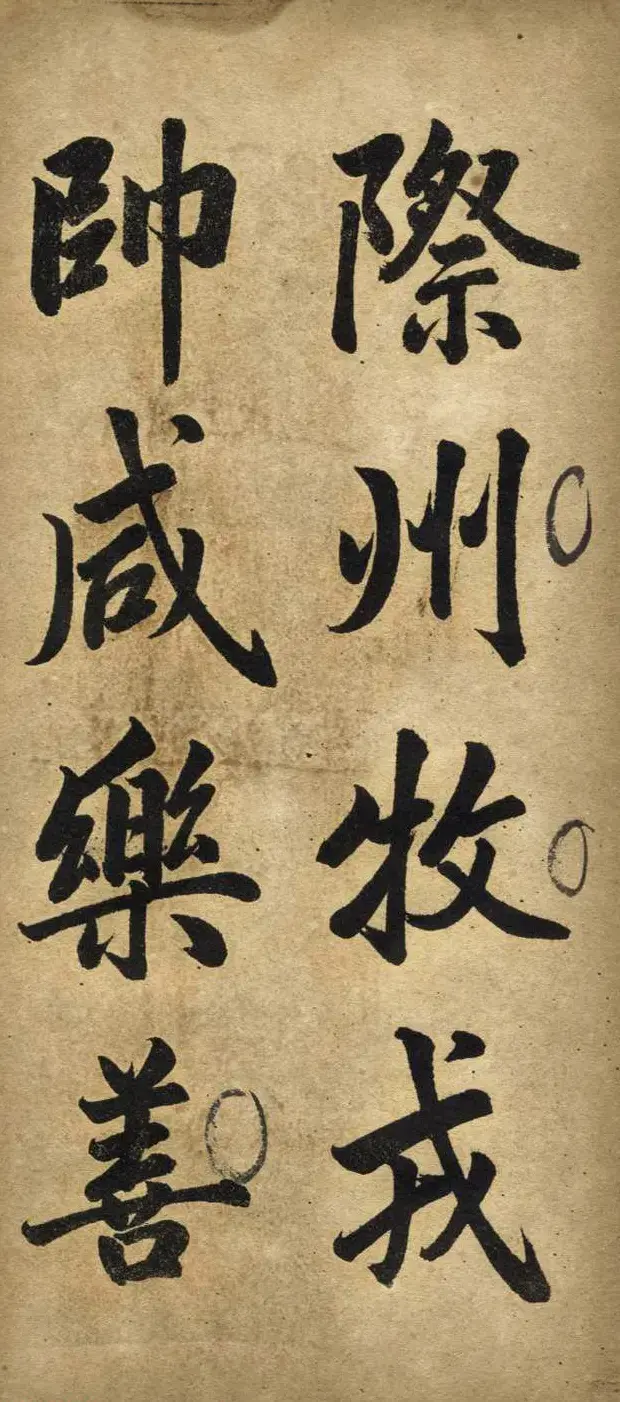 際州牧戎
帥咸樂善